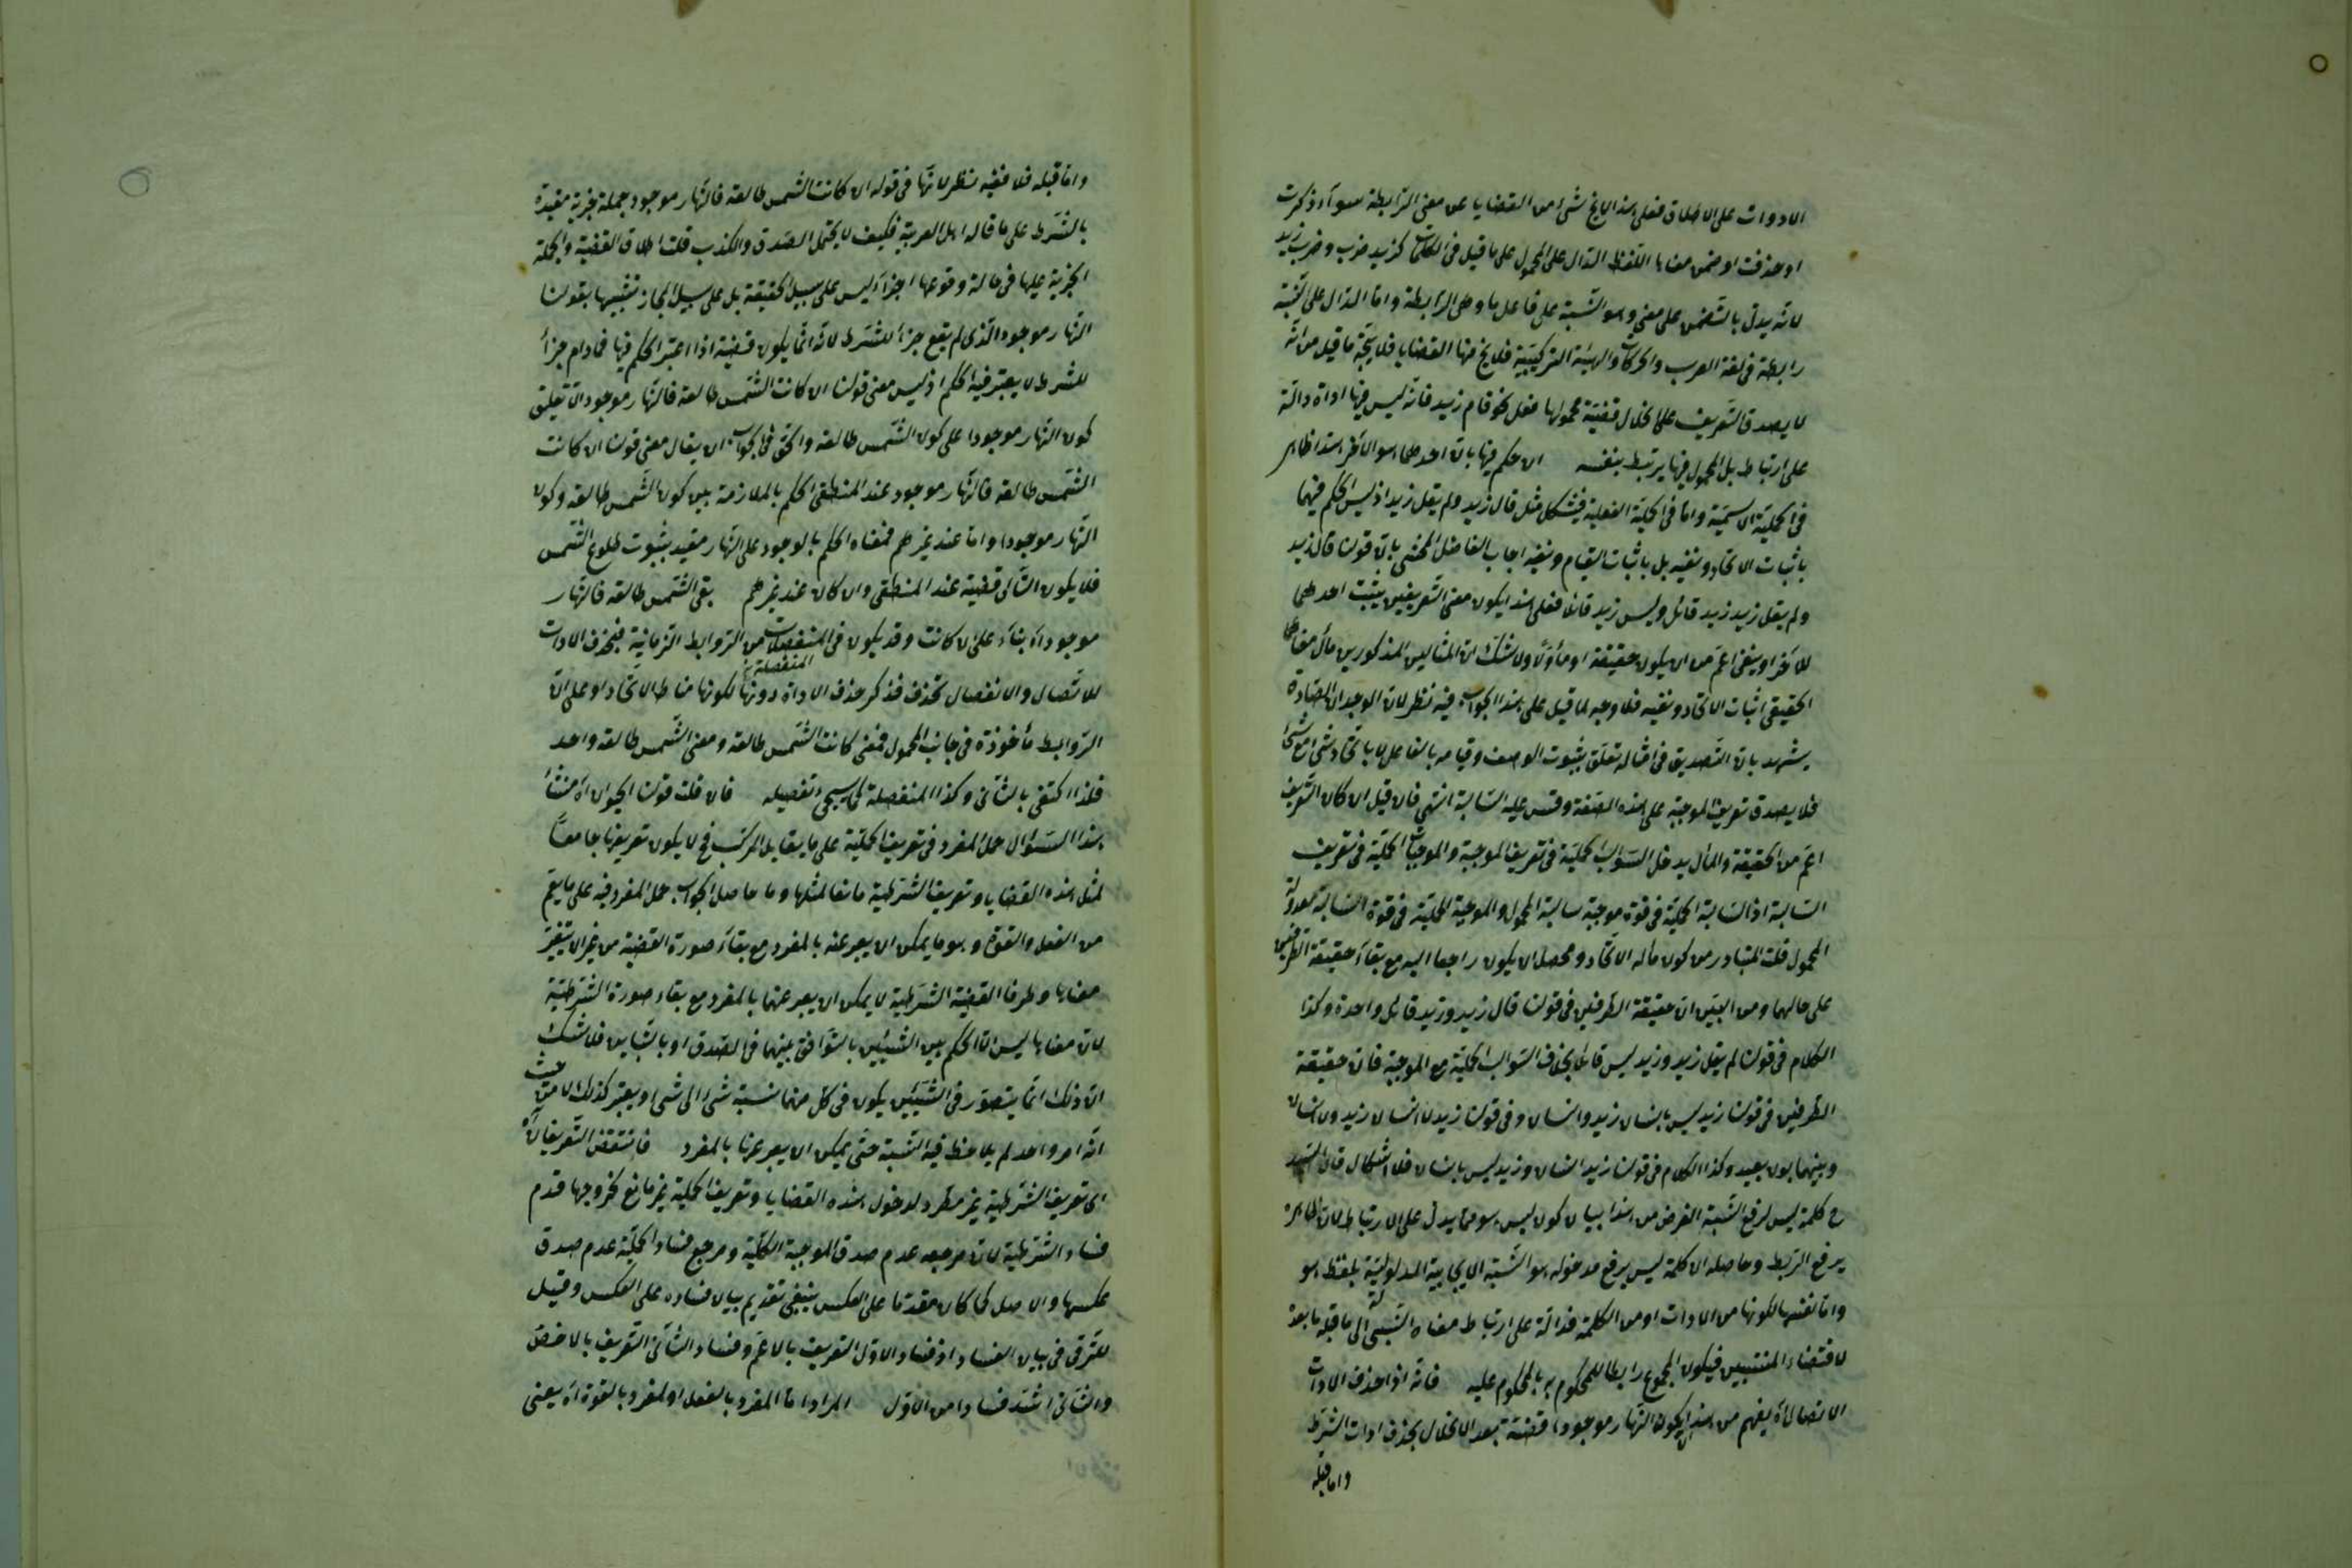 الادوات على الاطلاق فعلى هذا لايخ شئ من القضايا عن معنى الرابطة سوآء ذكرت
او حذفت او ضمن معناها اللفظ الدال على المحمول على ما قيل فى الكلمات كزيد ضرب وضرب زيد
لانه يدل بالتضمن على معنى وهو النسبة على فاعل ما وهى الرابطة واما الدال على النسبة
رابطة فى لغة العرب والحركات والهيئة التركيبية فلا يخ منها القضايا فلا يتجه ما قيل من انه
لا يصدق التعريف على انحلال قضية محمولها فعل نحو قام زيد فانه ليس فيها اداة دالة
على ارتباط بل المحمول فيها يرتبط بنفسه ان حكم فيها بان احدهما هو الآخر هذا ظاهر
فى الحملية الاسمية واما فى الحملية الفعلية فيشكل مثل قال زيد ولم يقل زيد اذ ليس الحكم فيهما
باثبات الاتحاد ونفيه بل باثبات القيام ونفيه اجاب الفاضل المحشى بان قولنا قال زيد
ولم يقل زيد زيد قائل وليس زيد قائلا فعلى هذا يكون معنى التعريفين يثبت احدهما
للآخر او ينفى اعم من ان يكون حقيقة او مأولا ولا شك ان المثالين المذكورين مآل معناهما
الحقيقى اثبات الاتحاد ونفيه فلا وجه لما قيل على هذا الجواب فيه نظر لان الوجدان الصادق
يشهد بان التصديق فى امثاله تعلق بثبوت الوصف وقيامه بالفاعل لا باتحاد شئ مع شئ
فلا يصدق تعريف الموجبة على هذه الصفة وقس عليه السالبة انتهى فان قيل ان كان التعريف
اعم من الحقيقة والمآل يدخل السوالب الحملية فى تعريف الموجبة والموجبات الحملية فى تعريف
السالبة اذ السالبة الحملية فى قوة موجبة سالبة المحمول والموجبة الحملية فى قوة السالبة معدولة
المحمول قلت المتبادر من كون مآله الاتحاد ومحصله ان يكون راجعا اليه مع بقآء حقيقة الطرفين
على حالهما ومن البين ان حقيقة الطرفين فى قولنا قال زيد وزيد قائل واحدة وكذا
الكلام فى قولنا لم يقل زيد وزيد ليس قائلا بخلاف السوالب الحملية مع الموجبة فان حقيقة
الطرفين فى قولنا زيد ليس بانسان زيد وانسان وفى قولنا زيد لا انسان زيد ولا انسان
وبينهما بون بعيد وكذا الكلام فى قولنا زيد انسان وزيد ليس بانسان فلا اشكال قال السيد
ح كلمة ليس لرفع النسبة الغرض من هذا بيان كون ليس هو مما يدل على الارتباط لان ظاهره
يرفع الربط وحاصله ان كلمة ليس يرفع مدخوله هو النسبة الايجابية المدلولية بلفظ هو
واما نفسها لكونها من الادوات او من الكلمة فدالة على ارتباط معناه النسبى الى ما قبله ما بعده
لاقتضاء المنتسبين فيكون المجموع رابطا للمحكوم به بالمحكوم عليه فانه اذا حذف الادات
الاتصال اه يفهم من هذا ان يكون النهار موجودا قضية بعد الانحلال بحذف ادات الشرط
واما قبله
واما قبله فلا ففيه نظر لانها فى قوله ان كانت الشمس طالعة فالنهار موجود جملة خبرية مقيدة
بالشرط على ما قاله اهل العربية فكيف لا يحتمل الصدق والكذب قلت اطلاق القضية والجملة
الخبرية عليها فى حالة وقوعها اجزآء ليس على سبيل الحقيقة بل على سبيل المجاز تشبيها بقولنا
النهار موجود الذى لم يقع جزأ للشرط لانه انما يكون قضية اذا اعتبر الحكم فيها فما دام جزأ
للشرط لا يعتبر فيه الحكم اذ ليس معنى قولنا ان كانت الشمس طالعة فالنهار موجود الا تعليق
كون النهار موجودا على كون الشمس طالعة والحق فى الجواب ان يقال معنى قولنا ان كانت
الشمس طالعة فالنهار موجود عند المنطقى الحكم بالملازمة بين كون الشمس طالعة وكون
النهار موجودا واما عند غيرهم فمعناه الحكم بالوجود على النهار مقيد بثبوت طلوع الشمس
فلا يكون التالى قضية عند المنطقى وان كان عند غيرهم بقى الشمس طالعة فالنهار
موجود اه بنآء على ان كانت وقد يكون فى المنفصلات من الروابط الزمانية فبحذف الادات
للاتصال والانفصال تحذف فذكر حذف الاداة دونها لكونها مناط الاتحاد او على ان
المنفصلة
الروابط مأخوذة فى جانب المحمول فمعنى كانت الشمس طالعة ومعنى الشمس طالعة واحد
فلذا اكتفى بالثانى وكذا المنفصلة كما سيجئ تفصيله فان قلت قولنا الحيوان اه منشأ
هذا السؤال حمل المفرد فى تعريف الحملية على ما يقابل المركب فح لا يكون تعريفها جامعا
لمثل هذه القضايا وتعريف الشرطية مانعا لمثلها وما حاصل الجواب حمل المفرد فيه على ما يعم
من الفعل والقوة وهو ما يمكن ان يعبر عنه بالمفرد مع بقآء صورة القضية من غير ان يتغير
معناها وطرفا القضية الشرطية لا يمكن ان يعبر عنهما بالمفرد مع بقاء صورة الشرطية
لان معناها ليس الا الحكم بين الشيئين بالتوافق بينهما فى الصدق او بالتباين فلا شك
ان ذلك انما يتصور فى الشيئين يكون فى كل منهما نسبة شئ الى شئ ويعتبر كذلك لا من حيث
انه امر واحد لم يلاحظ فيه النسبة حتى يمكن ان يعبر عنها بالمفرد فانتقض التعريفان اه
اى تعريف الشرطية غير مطرد لدخول هذه القضايا وتعريف الحملية غير مانع لخروجها قدم
فساد الشرطية لان مرجعه عدم صدق الموجبة الكلية ومرجع فساد الحملية عدم صدق
عكسها والاصل كما كان مقدما على العكس ينبغى تقديم بيان فساده على العكس وقيل
للترقى فى بيان الفساد اذ فساد الاول التعريف بالاعم وفساد الثانى التعريف بالاخص
والثانى اشد فسادا من الاول المراد اما المفرد بالفعل او المفرد بالقوة اه يعنى